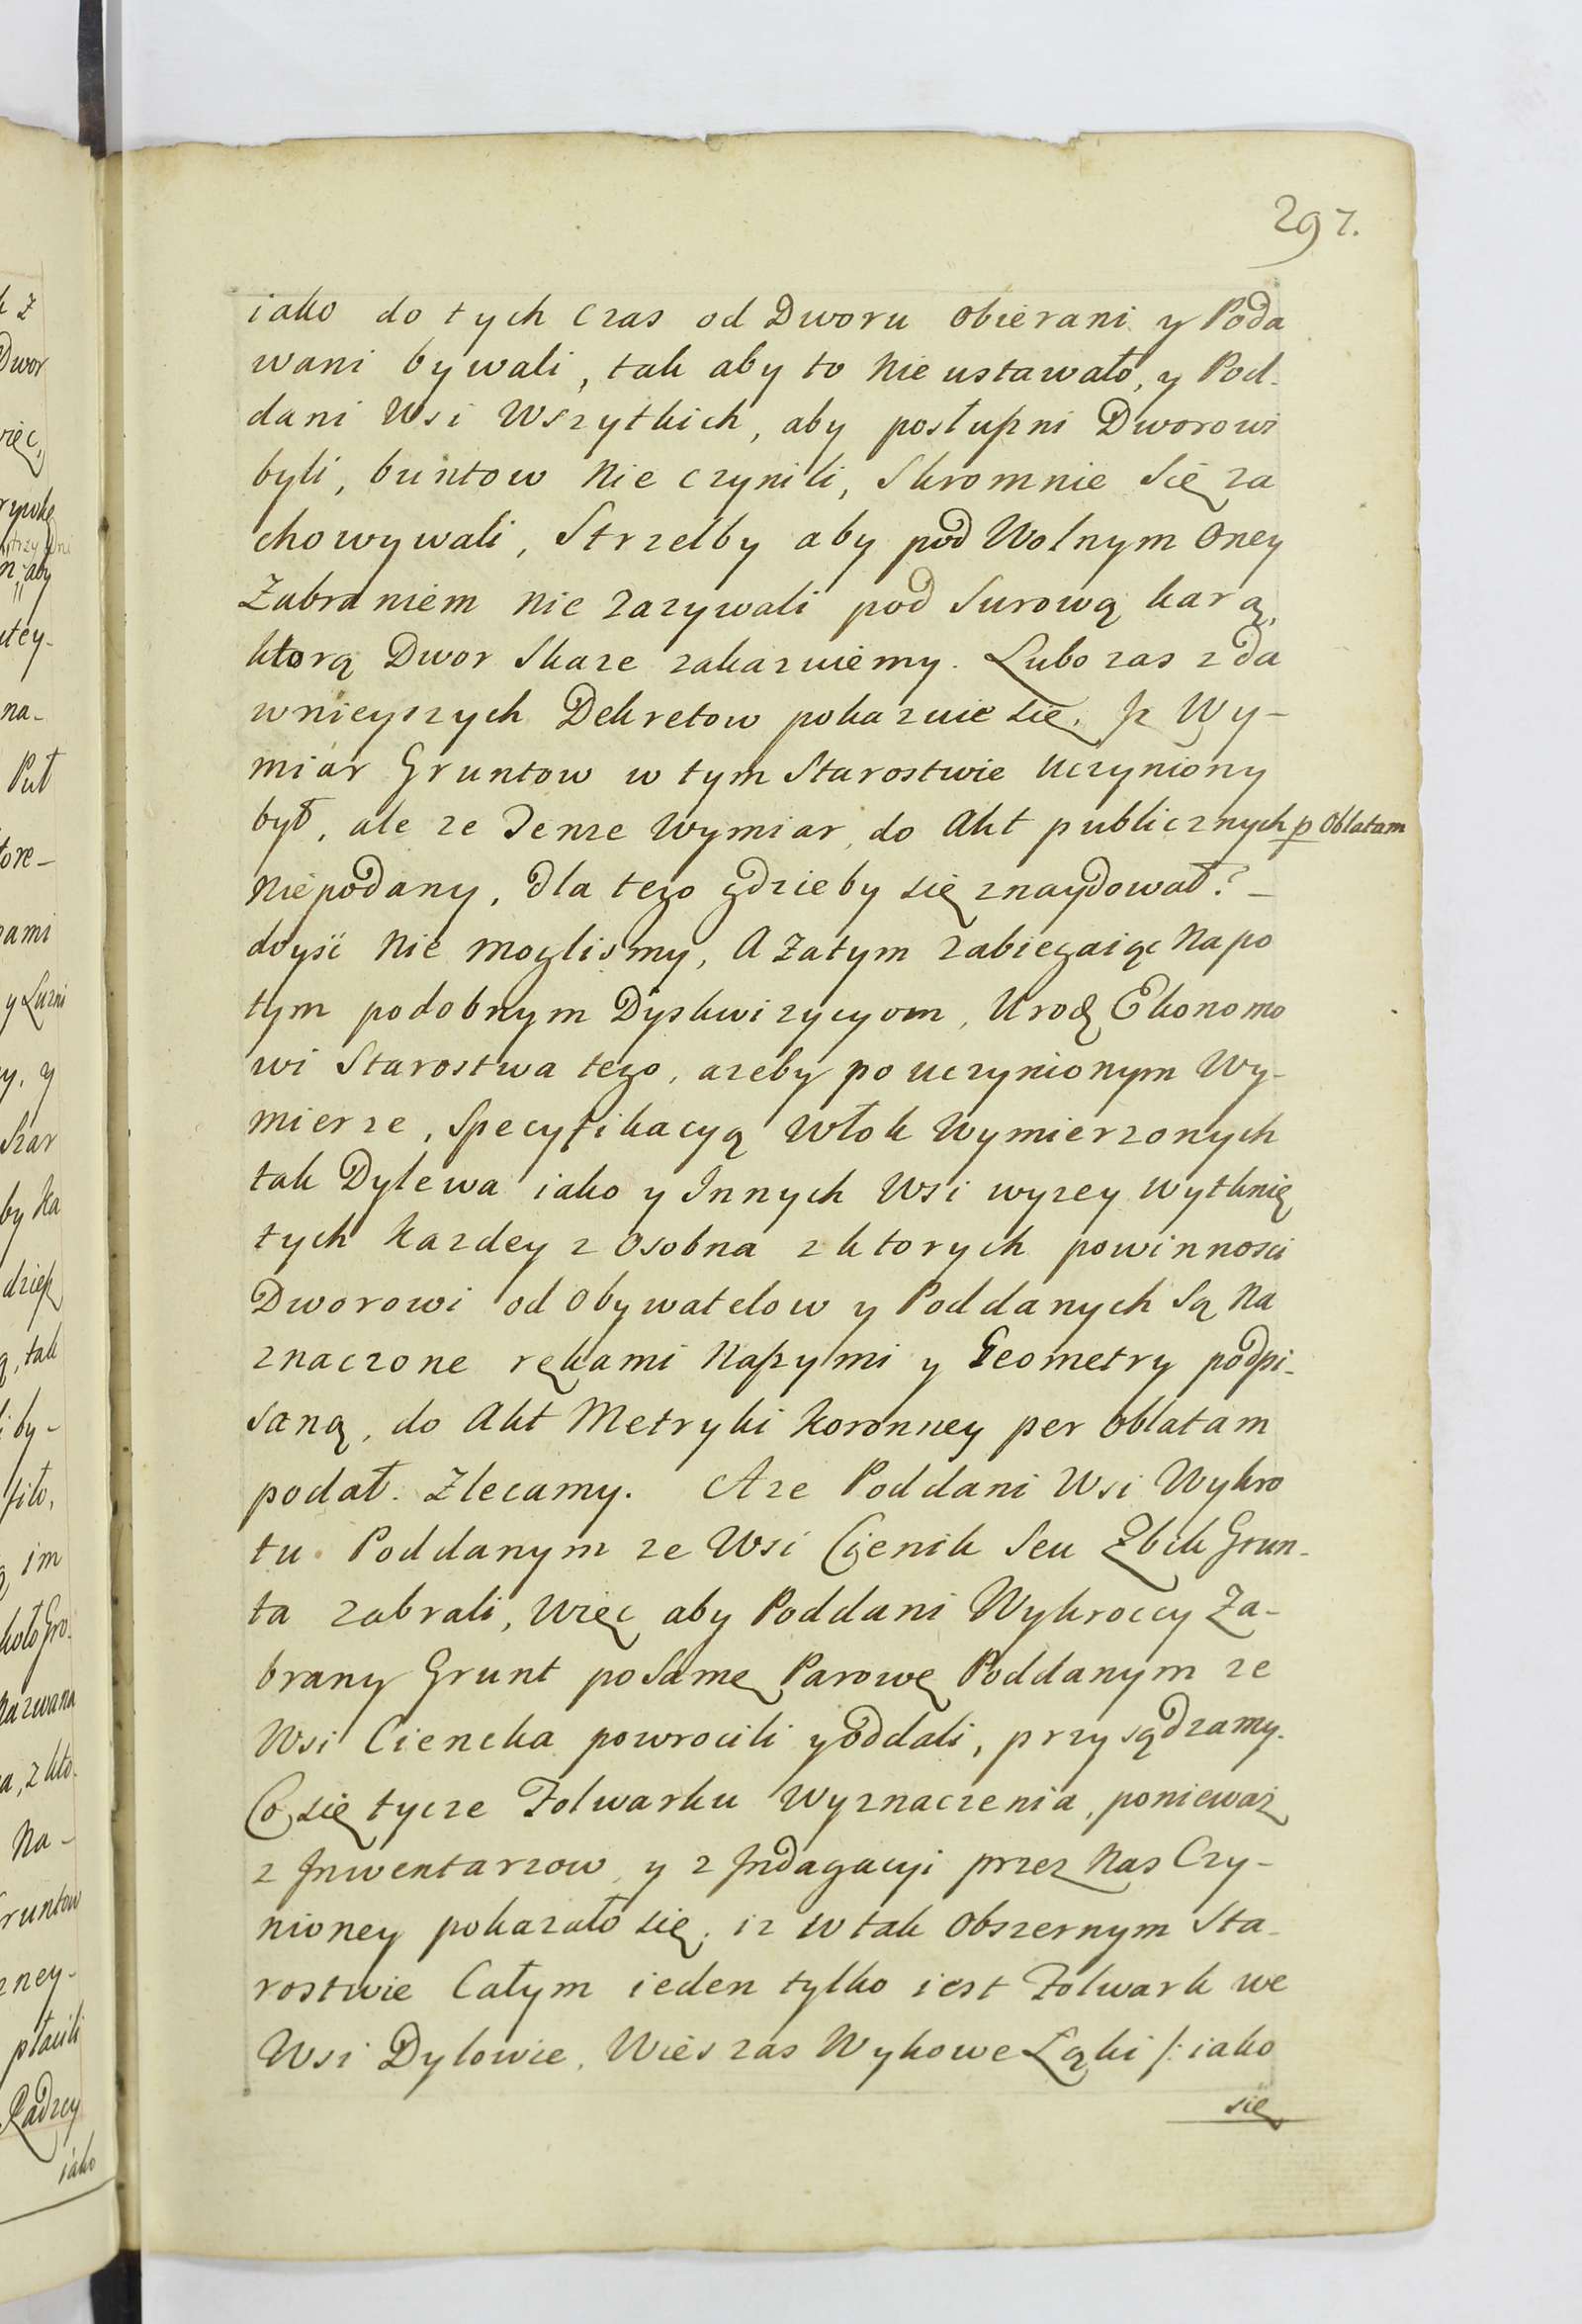 297.
iako do tych czas od Dworu obierani y Poda
wani bywali, tak aby to nie ustawało, y Pod-
dani Wsi Wszytkich, aby posłuszni Dworowi
byli, buntow nie czynili, Skromnie się za
chowywali, Strzelby aby pod Wolnym oney
Zabraniem nie zazywali pod Surową karą,
ktorą Dwor Skaze zakazuiemy. Lubo zas z da
wnieyszych Dekretow pokazuie się, Jz Wy-
miar Gruntow w tym Starostwie uczyniony
był, ale ze Tenze Wymiar, do Akt publicznych p Oblatam
nie podany, dla tego gdzieby się znaydował? -
doyść nie moglismy, A Zatym zabiegaiąc na po
tym podobnym Dyskwizycyom, Urodz Ekonomo
wi Starostwa tego, azeby po uczynionym Wy-
mierze, Specyfikacyą Włok Wymierzonych
tak Dylewa iako y Innych Wsi wyzey wytknię
tych kazdey z osobna z ktorych powinnosci
Dworowi od Obywatelow y Poddanych Są na
znaczone rękami naszymi y Geometry podpi-
saną, do Akt Metryki Koronney per oblatam
podał. Zlecamy. A ze Poddani Wsi Wykro
tu Poddanym ze Wsi Cienik Seu Zbik Grun-
ta zabrali, więc aby Poddani Wykroccy Za-
brany Grunt po Samę Parowę Poddanym ze
Wsi Ciencka powrocili y oddali, przysądzamy.
Co się tycze Folwarku Wyznaczenia, poniewaz
z Jnwentarzow, y z Jndagacyi przez nas Czy-
nioney pokazało się, iz w tak obszernym Sta-
rostwie Całym ieden tylko iest Folwark we
Wsi Dylowie, Wies zas Wykowe Łąki /: iako
się